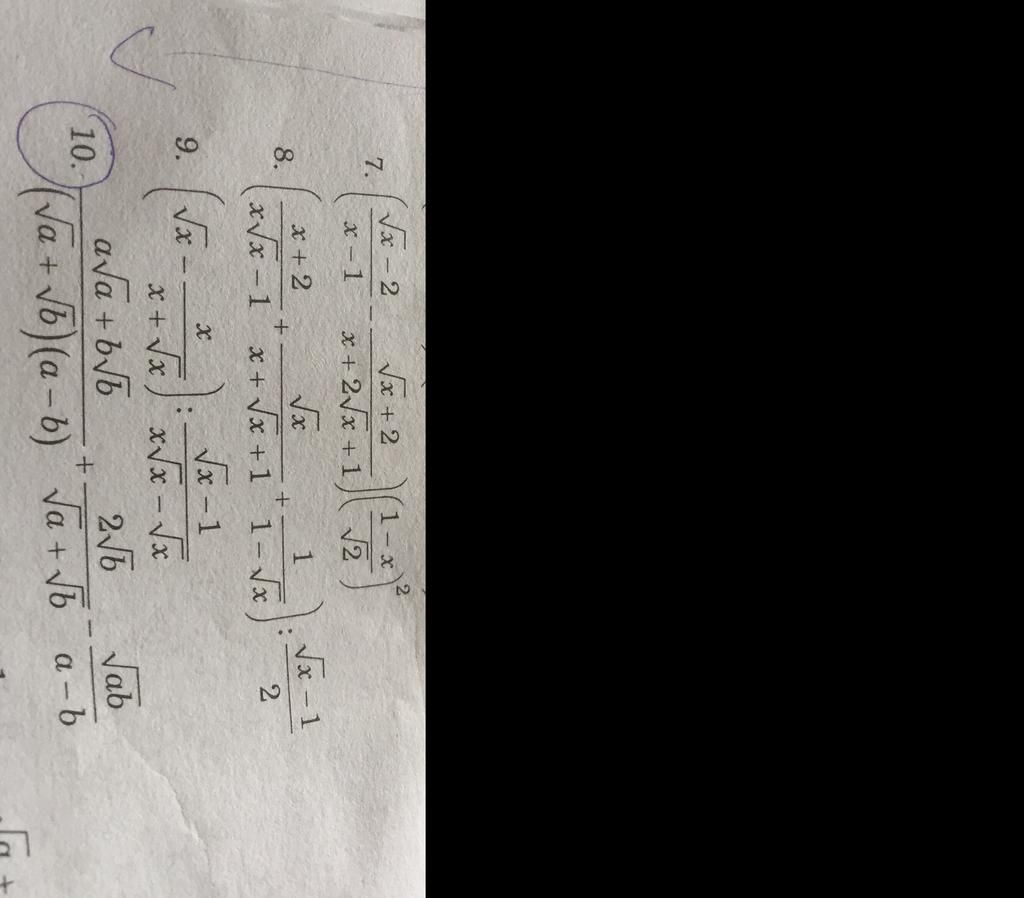 7. ( (√x − 2)/(x − 1) − (√x + 2)/(x + 2√x + 1) ) ( (1 − x)/√2 )²
8. ( (x + 2)/(x√x − 1) + √x/(x + √x + 1) + 1/(1 − √x) ) : (√x − 1)/2
9. ( √x − x/(x + √x) ) : (√x − 1)/(x√x − √x)
10. (a√a + b√b)/((√a + √b)(a − b)) + 2√b/(√a + √b) − √ab/(a − b)